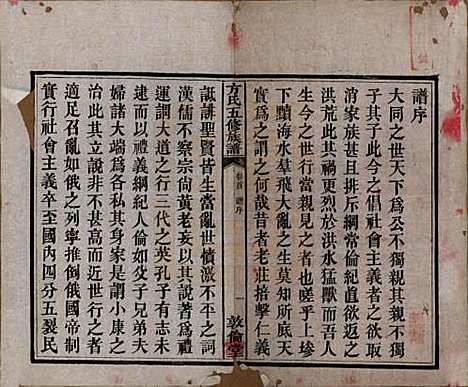 譜序
大同之世天下為公不獨親其親不獨
子其子此今之倡社會主義者必欲取
消家族甚且排斥綱常倫紀欲還之於
洪荒此其禍更烈於洪水猛獸而吾人
親見之者也嗟乎上埝
下黷海水羣飛大亂之生莫知所底天
實為之謂之何哉昔者老莊掊擊仁義
方氏五修族譜
卷首 譜序
敦倫堂
詆誹聖賢皆生當亂世憤激不平之詞
漢儒不察宗尚黃老妄以其說著為禮
運謂大道之行三代之英孔子有志未
逮而以禮義綱紀人倫如父子兄弟夫
婦諸大端為各私其身家是謂小康之
世立說非不甚高而近世行之者
適足召亂如俄之列寧推倒俄國帝制
實行社會主義卒至國內四分五裂民